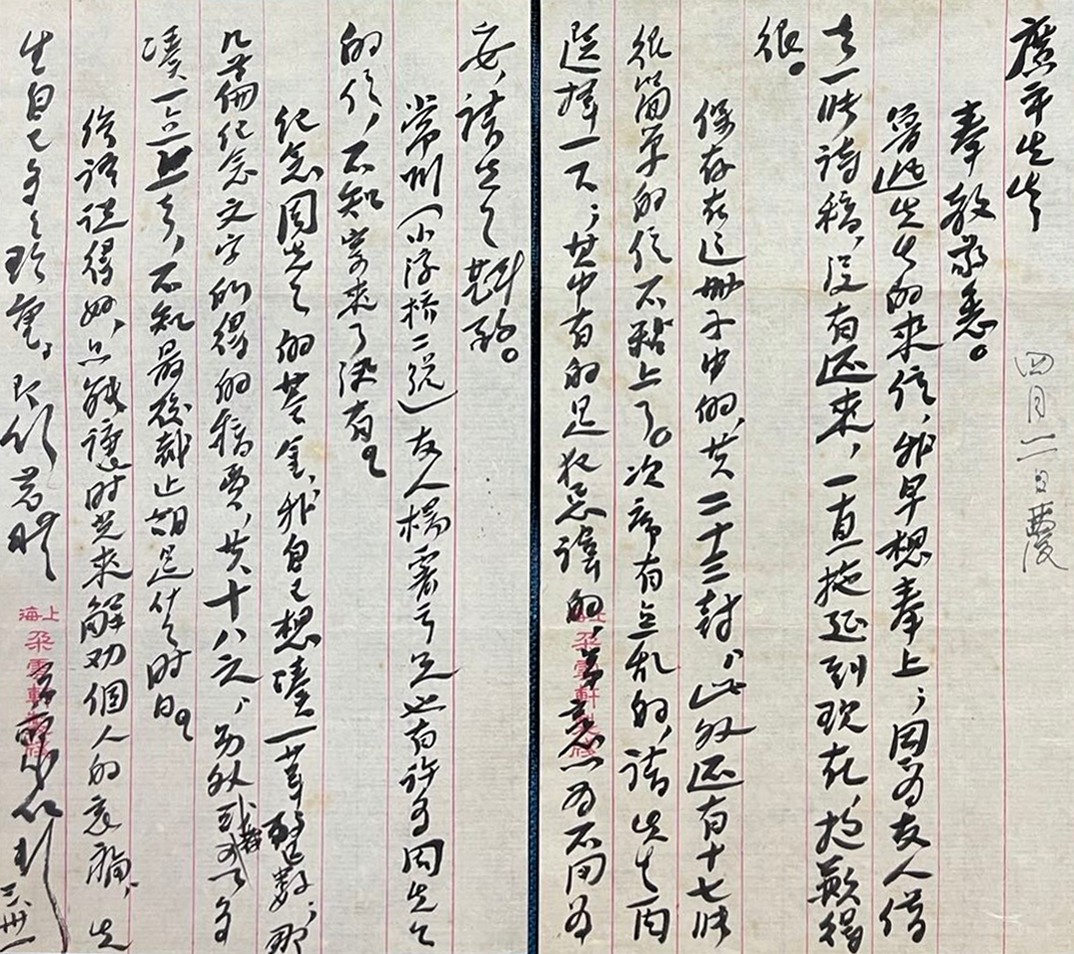 广平先生
四月二日覆
奉教敬悉。
鲁迅先生的来信，我早想奉上；因为友人借
去一张诗稿，没有还来，一直拖延到现在，抱歉得
很。
保存在这册子中的，共二十三封，此外还有十七张
很简单的信不黏上了。次序有点乱的，请先生自
选择一下；其中有的是犯忌讳的，弟意以为不用为
妥，请先生斟酌。
常州（小浮桥二号）友人杨霁云兄也有许多周先生
的信，不知寄来了没有？
纪念周先生的基金，我自己想凑一笔整数；那
几篇纪念文字所得的稿费，共十八元，另外或者可以多
凑一点上去，不知最后截止期是什么时日？
俗语说得好，只能让时光来解劝个人的哀痛，先
生自己多多珍重。即颂著安
上海
朵云轩
三卅一